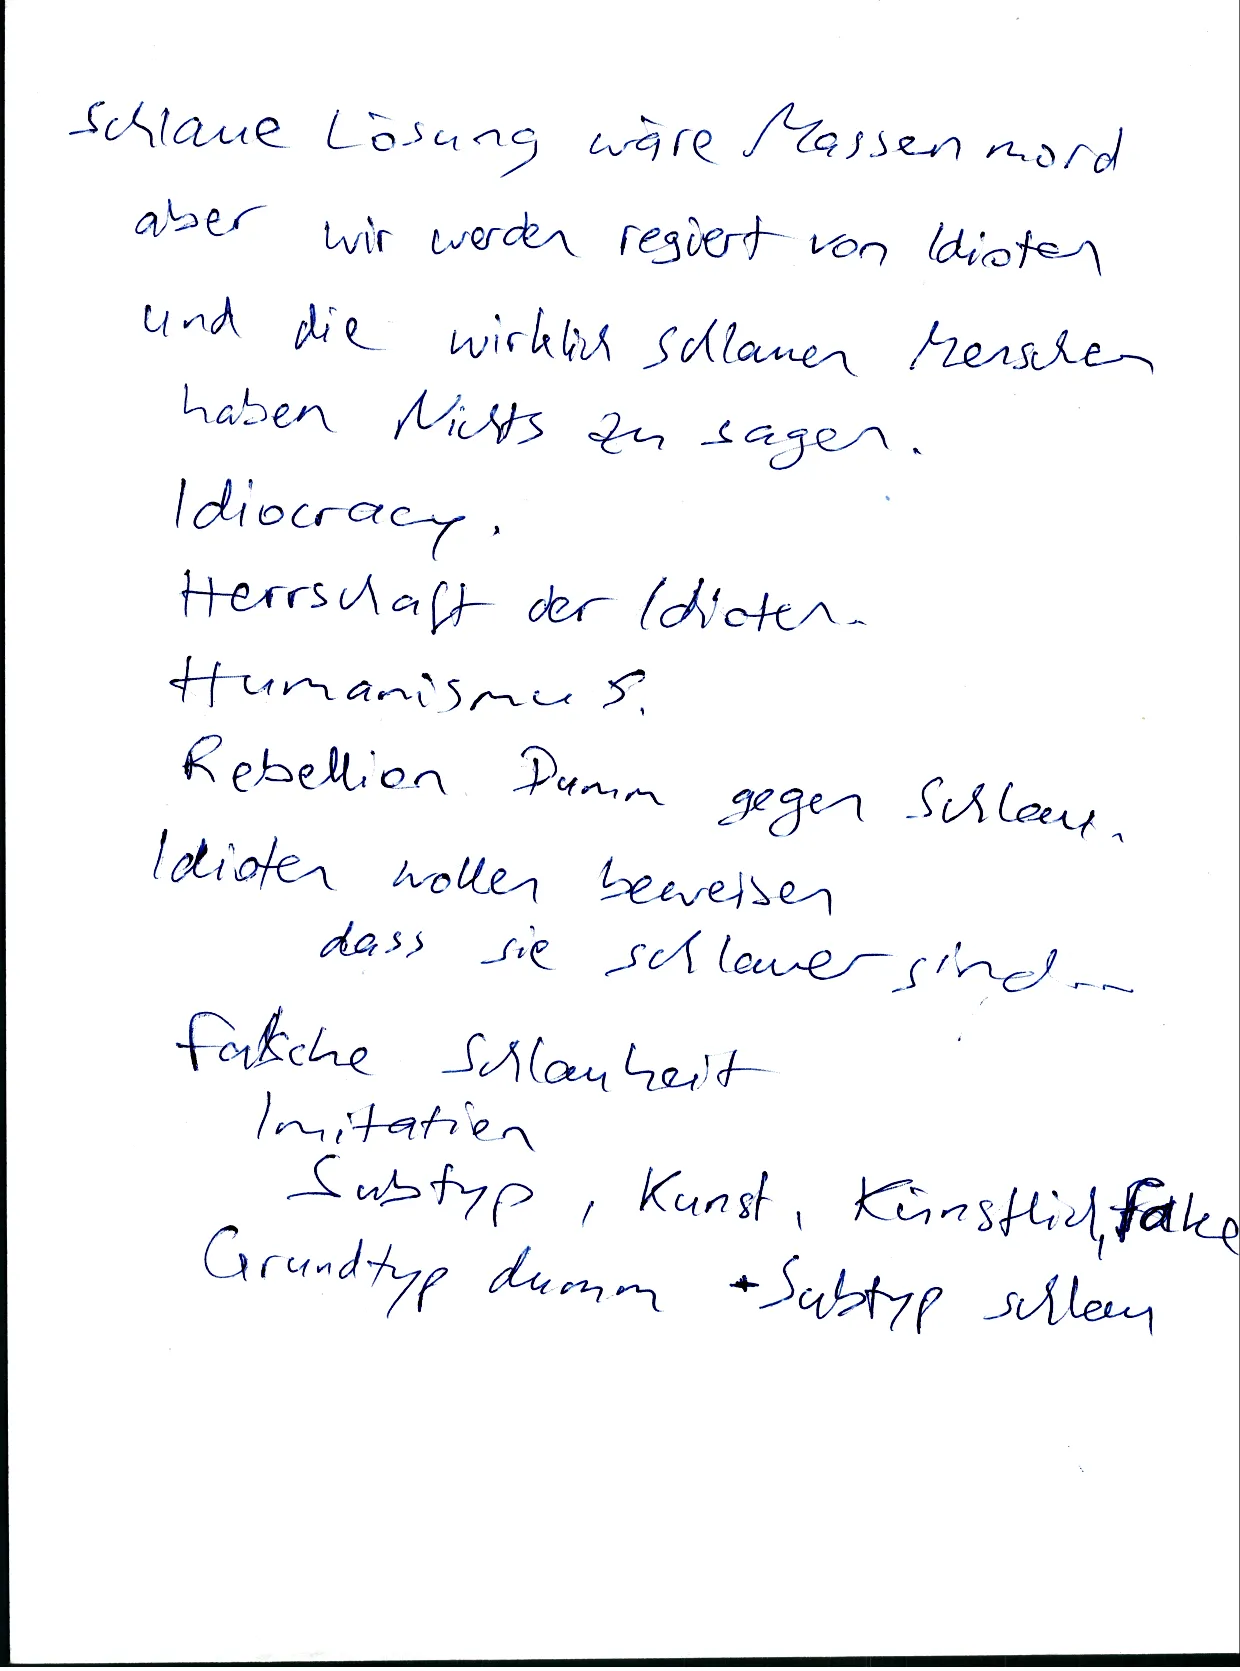 Schlaue Lösung wäre Massenmord
aber wir werden regiert von Idioten
und die wirklich schlauen Menschen
haben Nichts zu sagen.
Idiocracy.
Herrschaft der Idioten.
Humanismus.
Rebellion Dumm gegen Schlau.
Idioten wollen beweisen
dass sie schlauer sind...
falsche Schlauheit
Imitation
Subtyp, Kunst, Künstlich, fake
Grundtyp dumm + Subtyp schlau